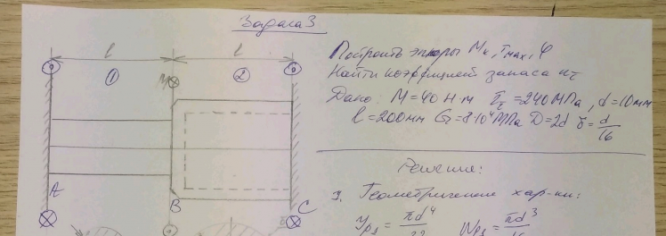 Задача 3
l l
① ② M
Построить эпюры Mк, τmax, φ
Найти коэффициент запаса nт
Дано: M = 40 Н м τт = 240 МПа, d = 10мм
l = 200мм G = 8·10⁴ МПа D = 2d δ = d/16
Решение:
1. Геометрические хар-ки:
A B C
Jp1 = πd⁴/32 Wp1 = πd³/16